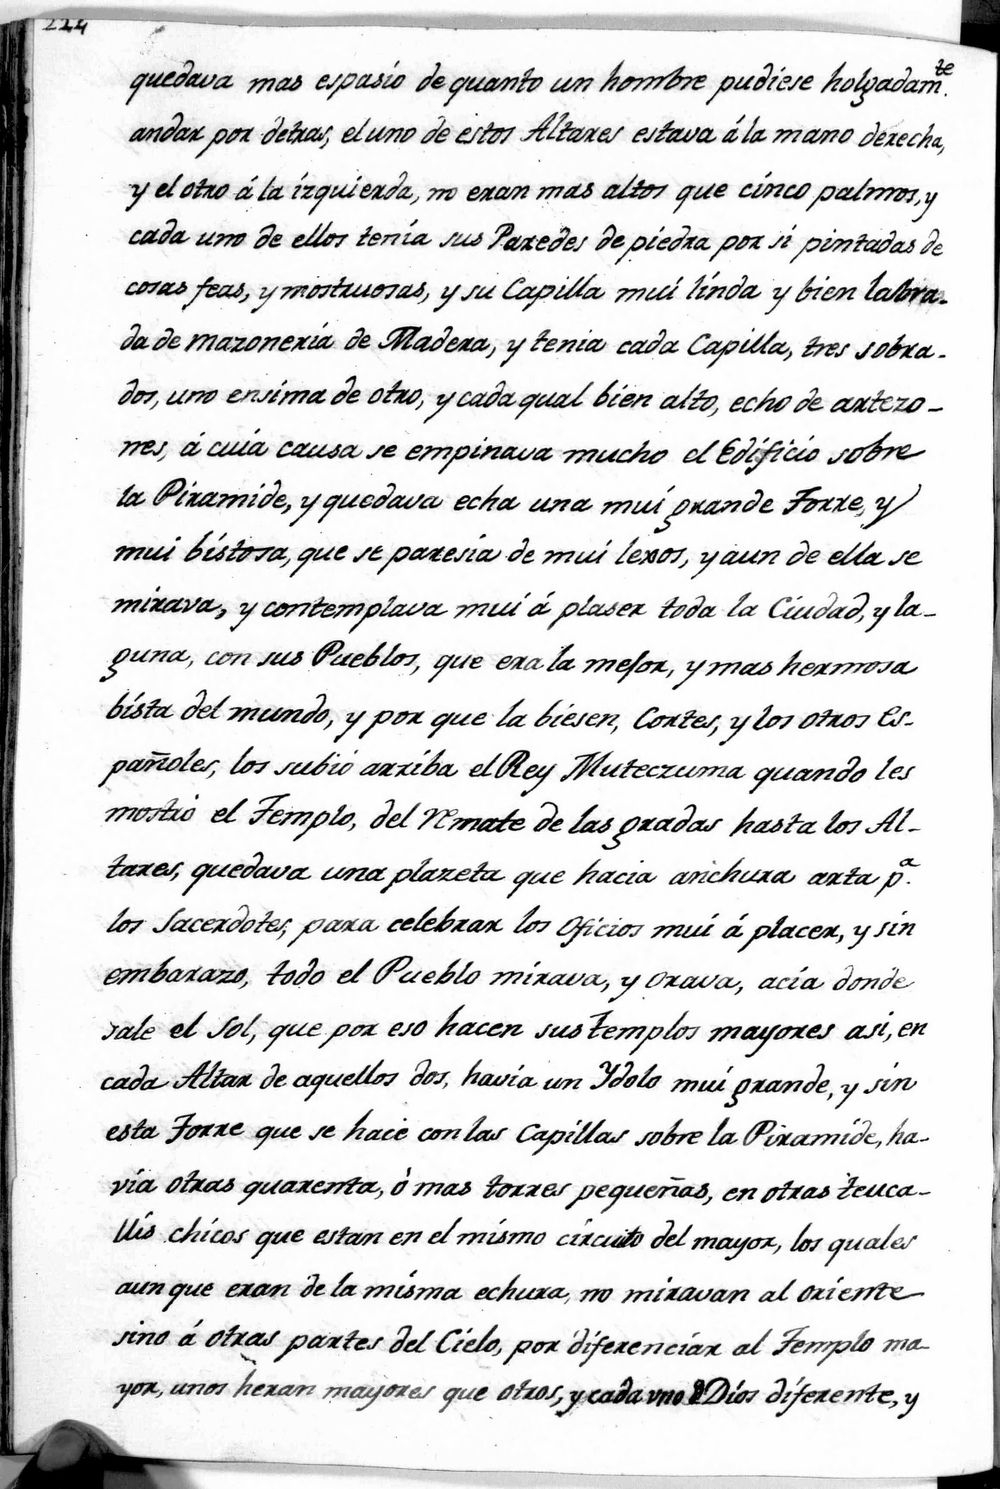 224
quedava mas espasio de quanto un hombre pudiese holgadam.te
andar por detras, el uno de estos Altares estava á la mano derecha,
y el otro á la izquierda, no eran mas altos que cinco palmos, y
cada uno de ellos tenía sus Paredes de piedra por si pintadas de
cosas feas, y mostruosas, y su Capilla muí línda y bien labra-
da de mazonería de Madera, y tenia cada Capilla, tres sobra-
dos, uno ensima de otro, y cada qual bien alto, echo de artezo-
nes, á cuía causa se empinava mucho el Edificio sobre
la Piramide, y quedava echa una muí grande Torre, y
mui bistosa, que se paresía de muí lexos, y aun de ella se
mirava, y contemplava muí á plaser toda la Ciudad, y la-
guna, con sus Pueblos, que era la mejor, y mas hermosa
bista del mundo, y por que la biesen, Cortes, y los otros Es-
pañoles, los subió arriba el Rey Muteczuma quando les
mostró el Templo, del remate de las gradas hasta los Al-
tares, quedava una plazeta que hacia anchura arta p.a
los Sacerdotes, para celebrar los Oficios muí á placer, y sin
embarazo, todo el Pueblo mirava, y orava, acía donde
sale el Sol, que por eso hacen sus Templos mayores asi, en
cada Altar de aquellos dos, havía un Ydolo muí grande, y sin
esta Torre que se hace con las Capillas sobre la Piramíde, ha-
vía otras quarenta, ò mas torres pequeñas, en otras teuca-
llis chicos que estan en el mismo circuito del mayor, los quales
aunque eran de la misma echura, no miravan al oriente
sino á otras partes del Cielo, por diferenciar al Templo ma-
yor, unos heran mayores que otros, y cada vno d Díos diferente, y